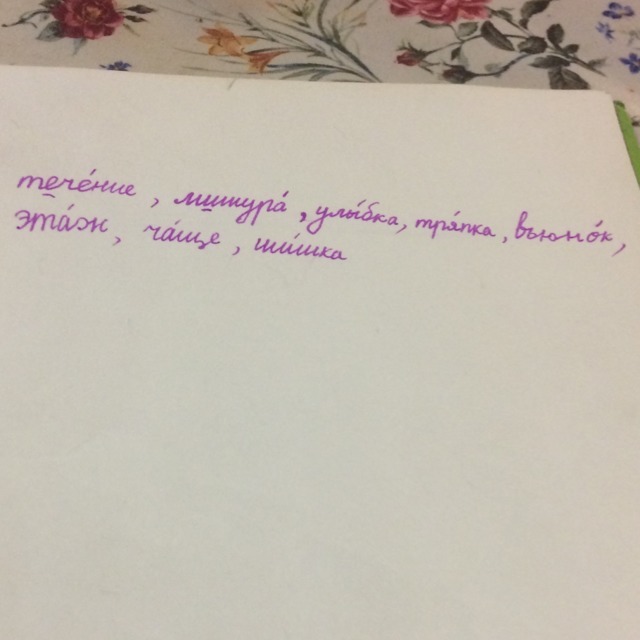 тече́ние, мишура́, улы́бка, тря́пка, вьюно́к,
эта́ж, ча́ще, ши́шка